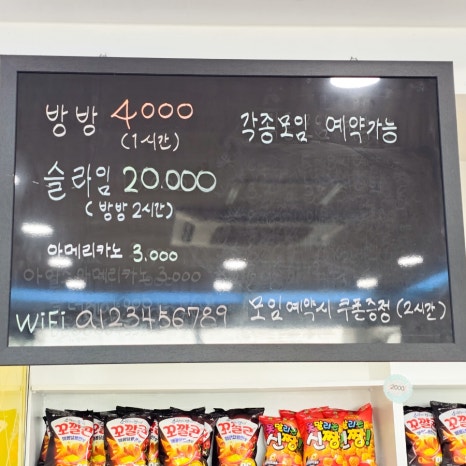 방방 4000
(1시간)
각종모임 예약가능
슬라임 20.000
(방방 2시간)
아메리카노 3.000
WiFi a123456789
모임 예약시 쿠폰증정 (2시간)
2000
꼬깔콘 꼬깔콘 꼬깔콘 신짱 신짱 꼬깔콘